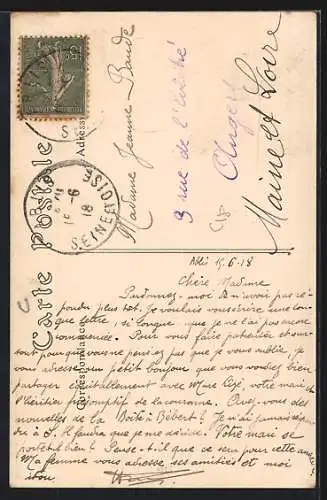 Carte Postale
Correspondance
Adresse
15c
15-6
18
SEINE & OISE
Madame Jeanne Baude
3 rue de l'Evêché
Angers
Maine et Loire
15.6.18
Chère Madame
Pardonnez-moi de n'avoir pas ré-
pondu plus tôt. Je voulais vous écrire une lon-
gue lettre, si longue que je ne l'ai pas encore
commencée. Pour vous faire patienter et sur
tout pour que vous ne pensiez pas que je vous oublie, je
vous adresse un petit bonjour que vous voudrez bien
partager équitablement avec Mme votre mari et
l'héritier présomptif de la couronne. Avez-vous des
nouvelles de la Boîte à Bébert? Je n'ai jamais ré
à S. Il faudra que je me décide. Votre mari se
porte-t-il bien? Pense-t-il que ce sera pour cette année
Ma femme vous adresse ses amitiés et moi
itou